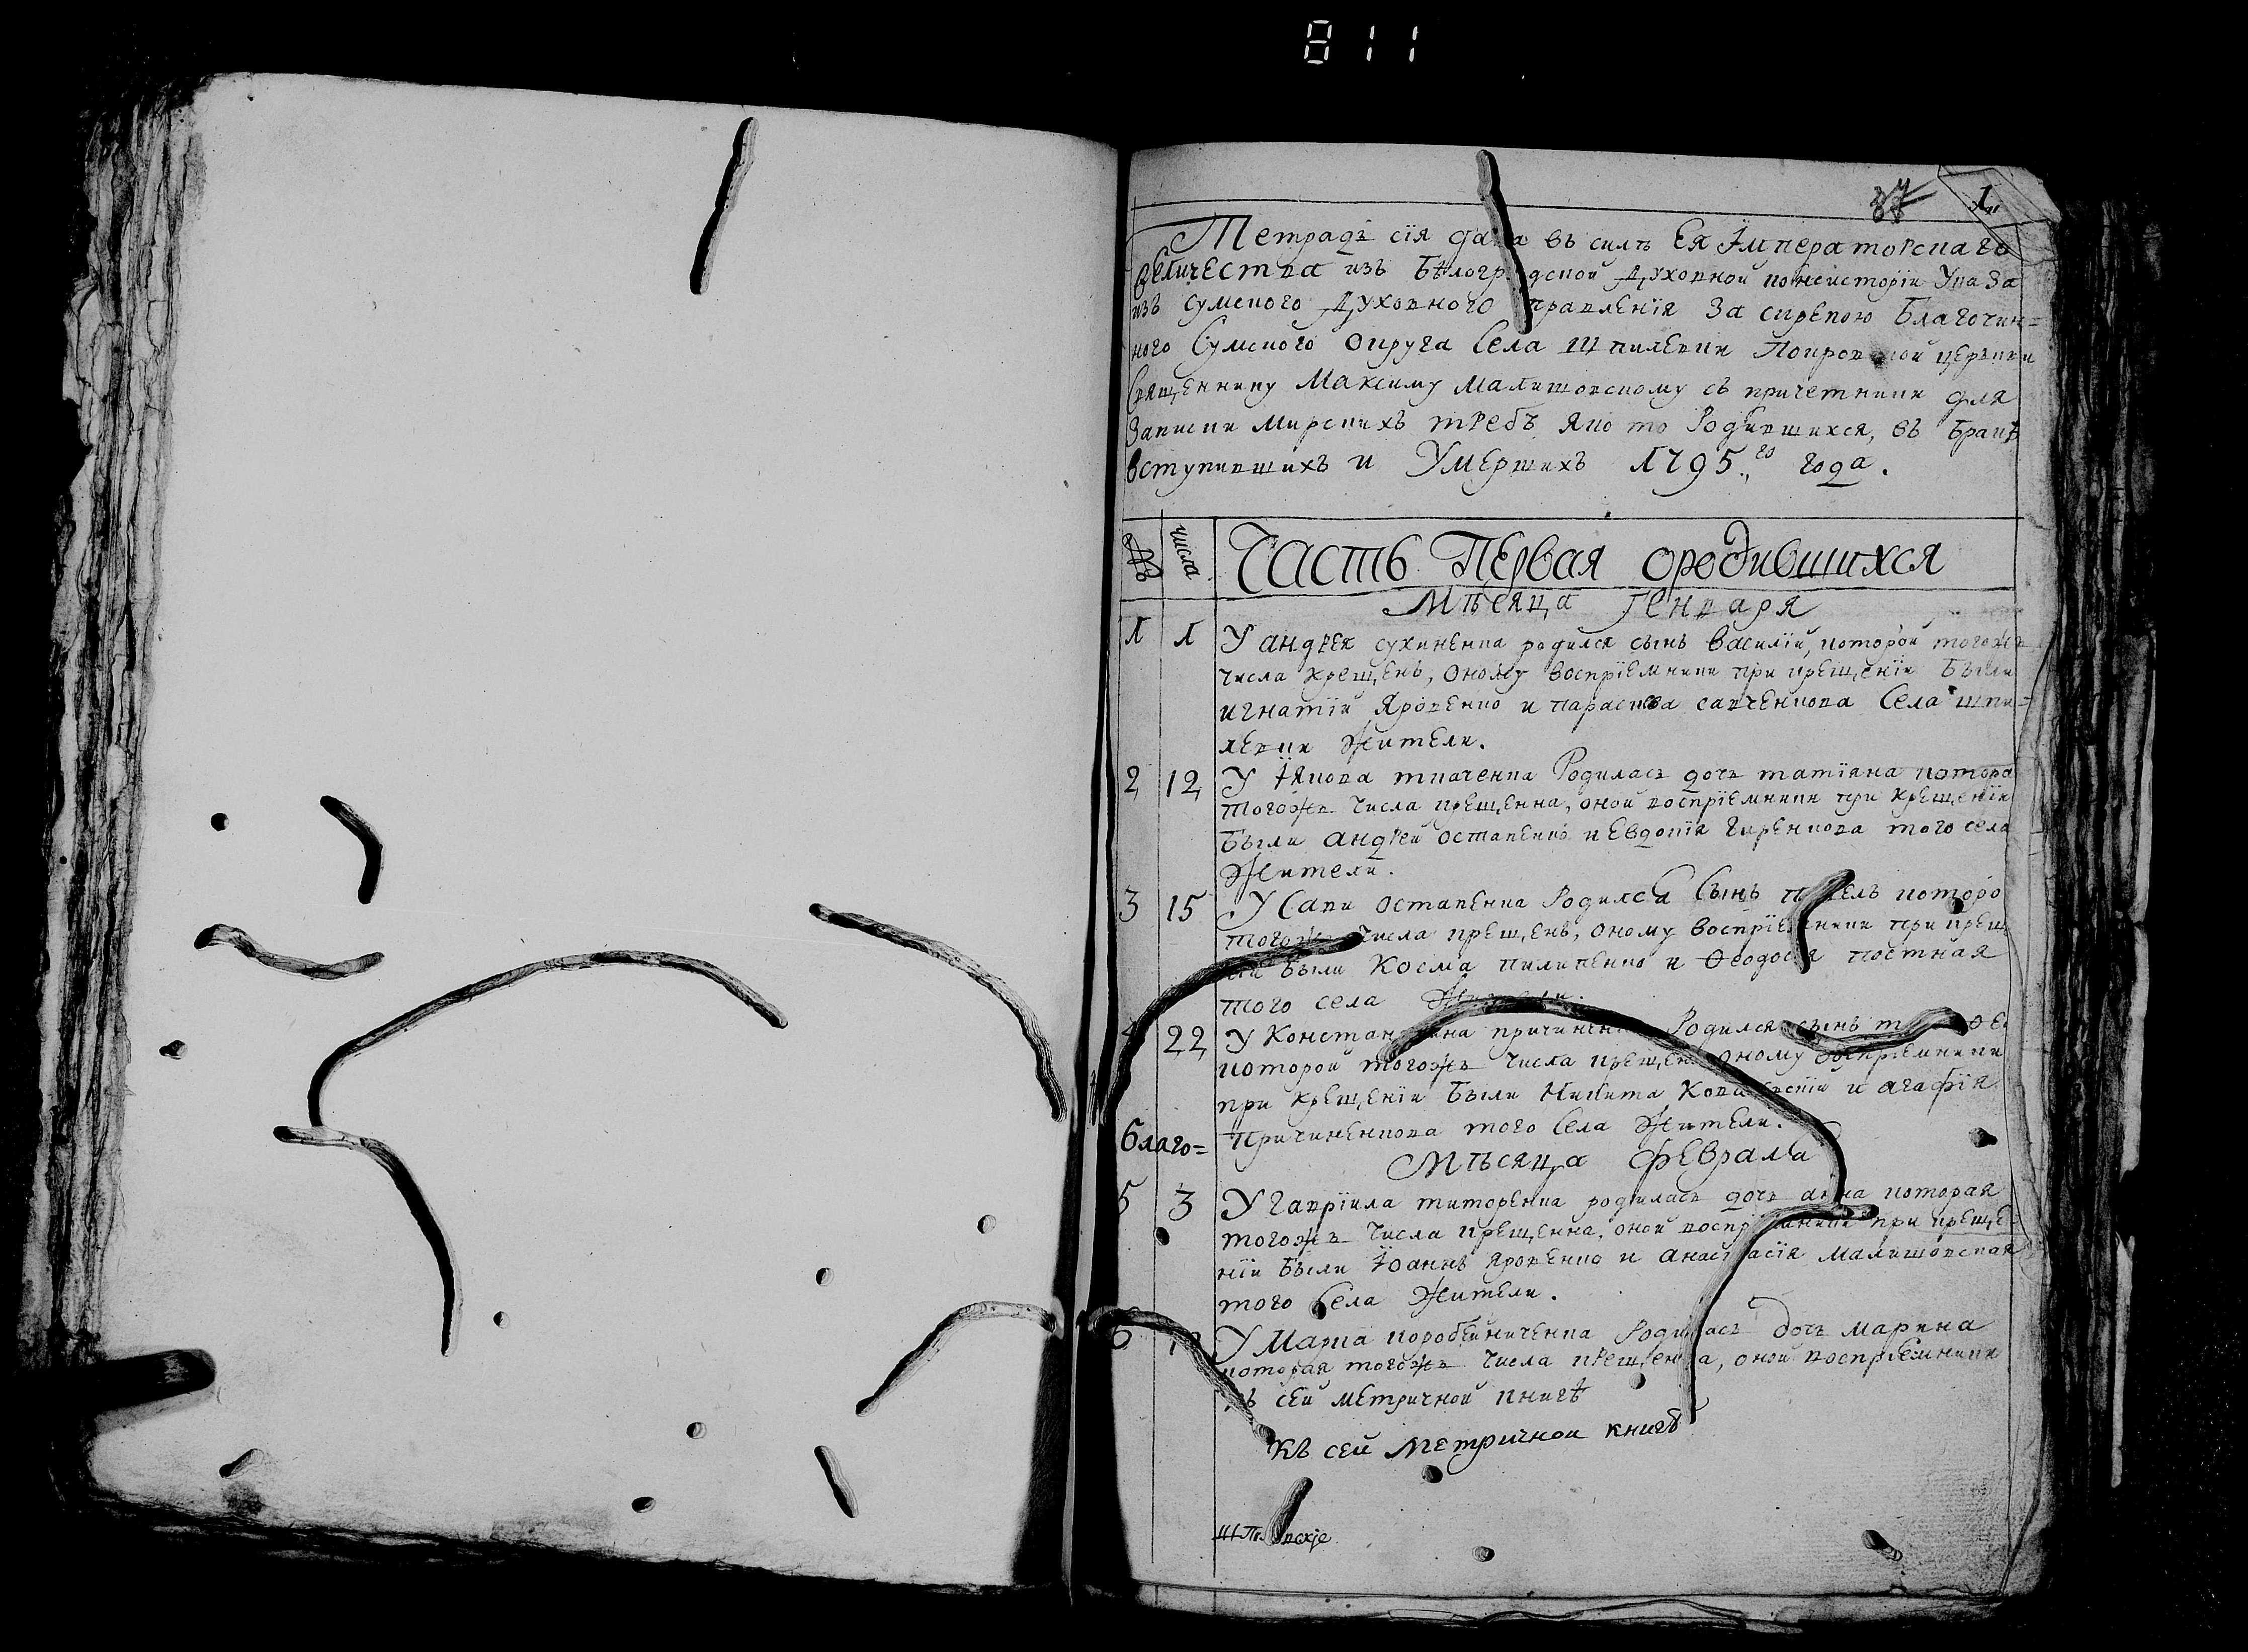 811
37 1
Тетрадь сїя дана въ силѣ Ея Їмператорскаго
Величества изъ Бѣлогродской Духовной консисторїи Указа
изъ сумского Духовного правленїя За скрепою Благочин=
ного Сумского округа Села Шпилевки Покровской церкви
Священнику Максиму Малишовскому съ причетники для
Записки мирскихъ требъ яко то Родившихся, въ бракъ
вступившихъ и Умершихъ 1795.го года.
№ числа Часть Первая ородившихся
Мѣсяца Генваря
1 1 У андрея сухиненка родился сынъ василїй, которой тогожъ
числа крещенъ, оному воспрїемники при крещенїи были
игнатїй Яровенко и параскева савченкова Села шпи=
левки Жители.
2 12 У Їякова ткаченка Родилась дочь татїяна котора
тогожъ числа крещенна, оной воспрїемники при крещенїи
были андрей остапенко и Евдокїя гиренкова того села
Жители.
3 15 У Савы остапенка Родился Сынъ которо
тогожъ числа крещенъ, оному воспрїемники при крещ
были Косма пилипенко и Ѳеодосїя постная
того села Жители.
4 22 У Константина причиненка Родился сынъ
которой тогожъ числа крещенъ оному воспрїемники
при крещенїи были Никита и агафїя
Благо= Причиненкова того Села Жители.
Мѣсяца февраля
5 3 У гаврїила титоренка родилась дочь анна которая
тогожъ числа крещенна, оной воспрїемники при креще
нїи были Їоаннъ яровенко и анастасїя малишовская
того Села Жители.
6 У Марка коробейниченка Родилась дочь марина
которая тогожъ числа крещенна, оной воспрїемники
къ сей метричной книгѣ
Къ сей метричной книгѣ